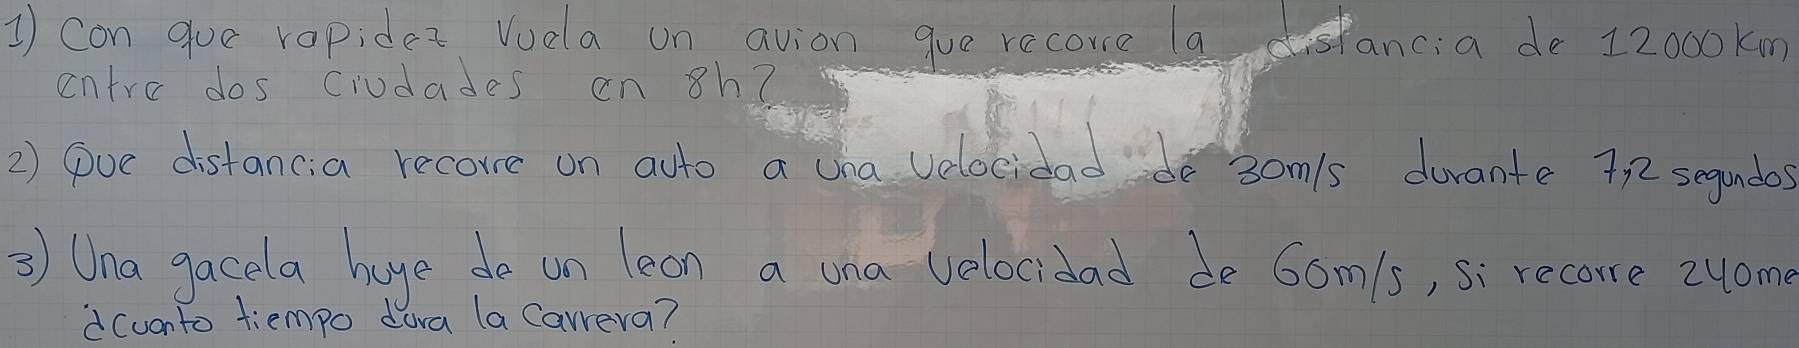 1) Con que rapidez vuela un avion que recorre la distancia de 12000 km
entre dos ciudades en 8h?
2) Que distancia recorre un auto a una velocidad de 30m/s durante 7,2 segundos
3) Una gacela huye de un leon a una velocidad de 60m/s, si recorre 240me
¿cuanto tiempo dura la carrera?